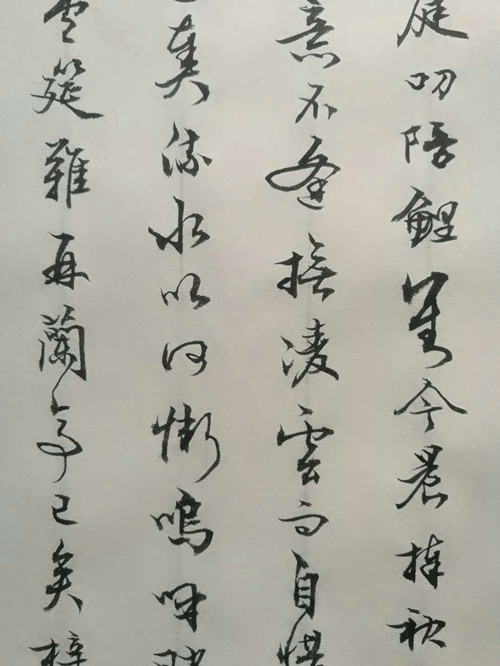 庭叨陪鯉對今晨捧袂
意不逢撫凌雲而自惜
奏流水以何慚嗚呼勝
盛筵難再蘭亭已矣梓